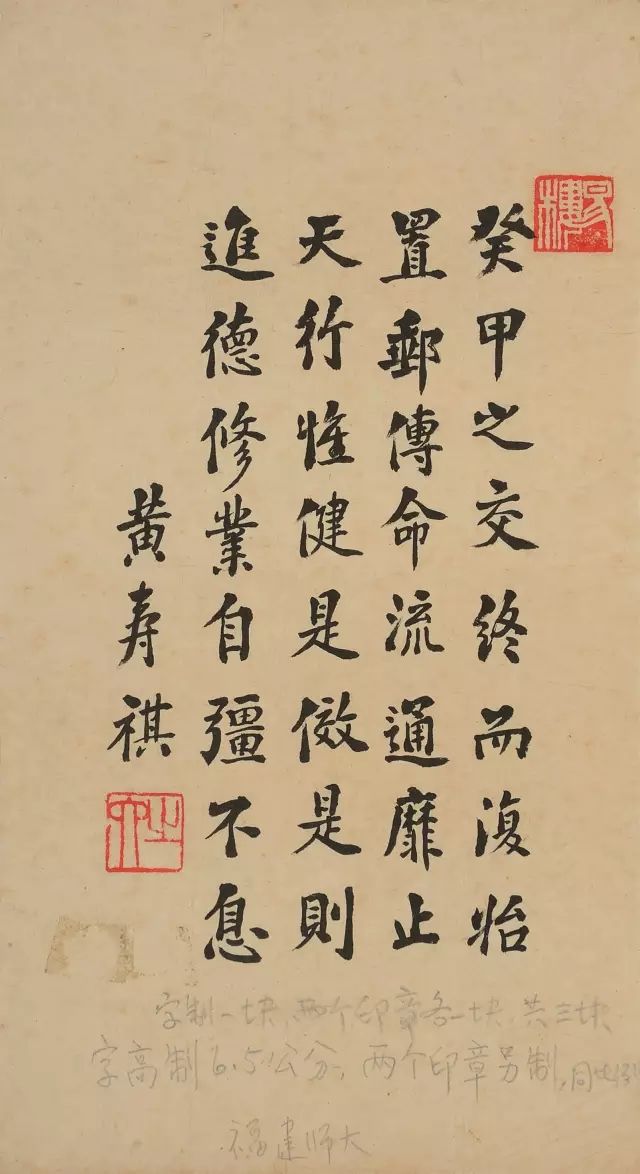 癸甲之交終而復始
置郵傳命流通靡止
天行惟健是傚是則
進德修業自彊不息
黄寿祺
字制一块,两个印章各一块,共三块
字高制6.5公分,两个印章另制,同比例
福建师大